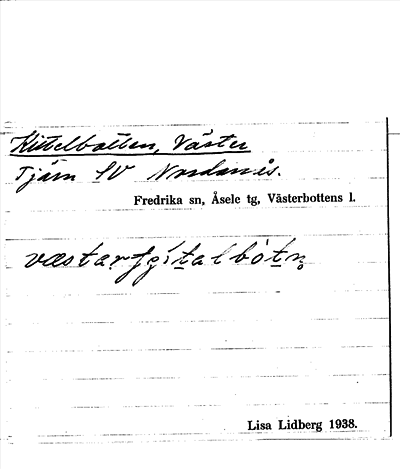 Kittelbotten, Väster
Tjärn SV Nordanås.
Fredrika sn, Åsele tg, Västerbottens l.
Lisa Lidberg 1938.